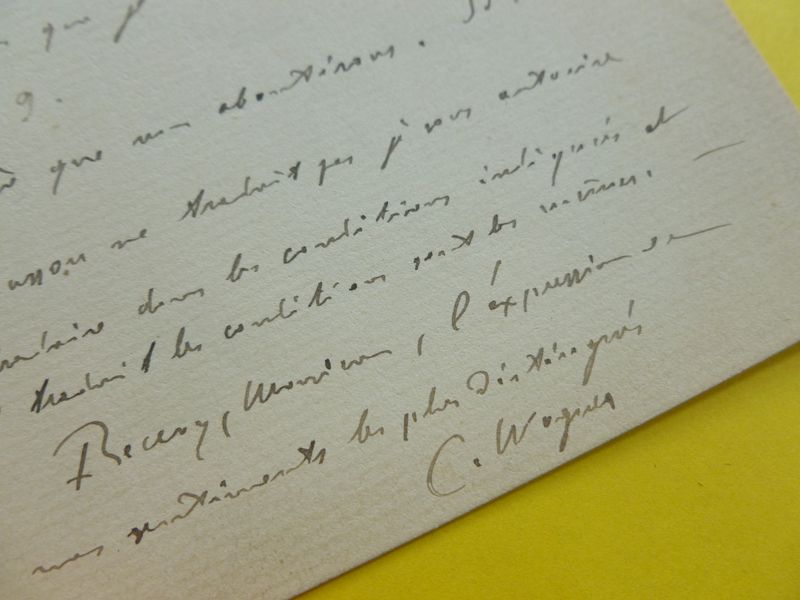 que j
9.
que nous aboutirons. Si
ne traduit pas je vous autorise
traduire dans les conditions indiquées et
traduit les conditions sont les mêmes. —
Recevez, Monsieur, l'expression de
mes sentiments les plus distingués
C. Wagner